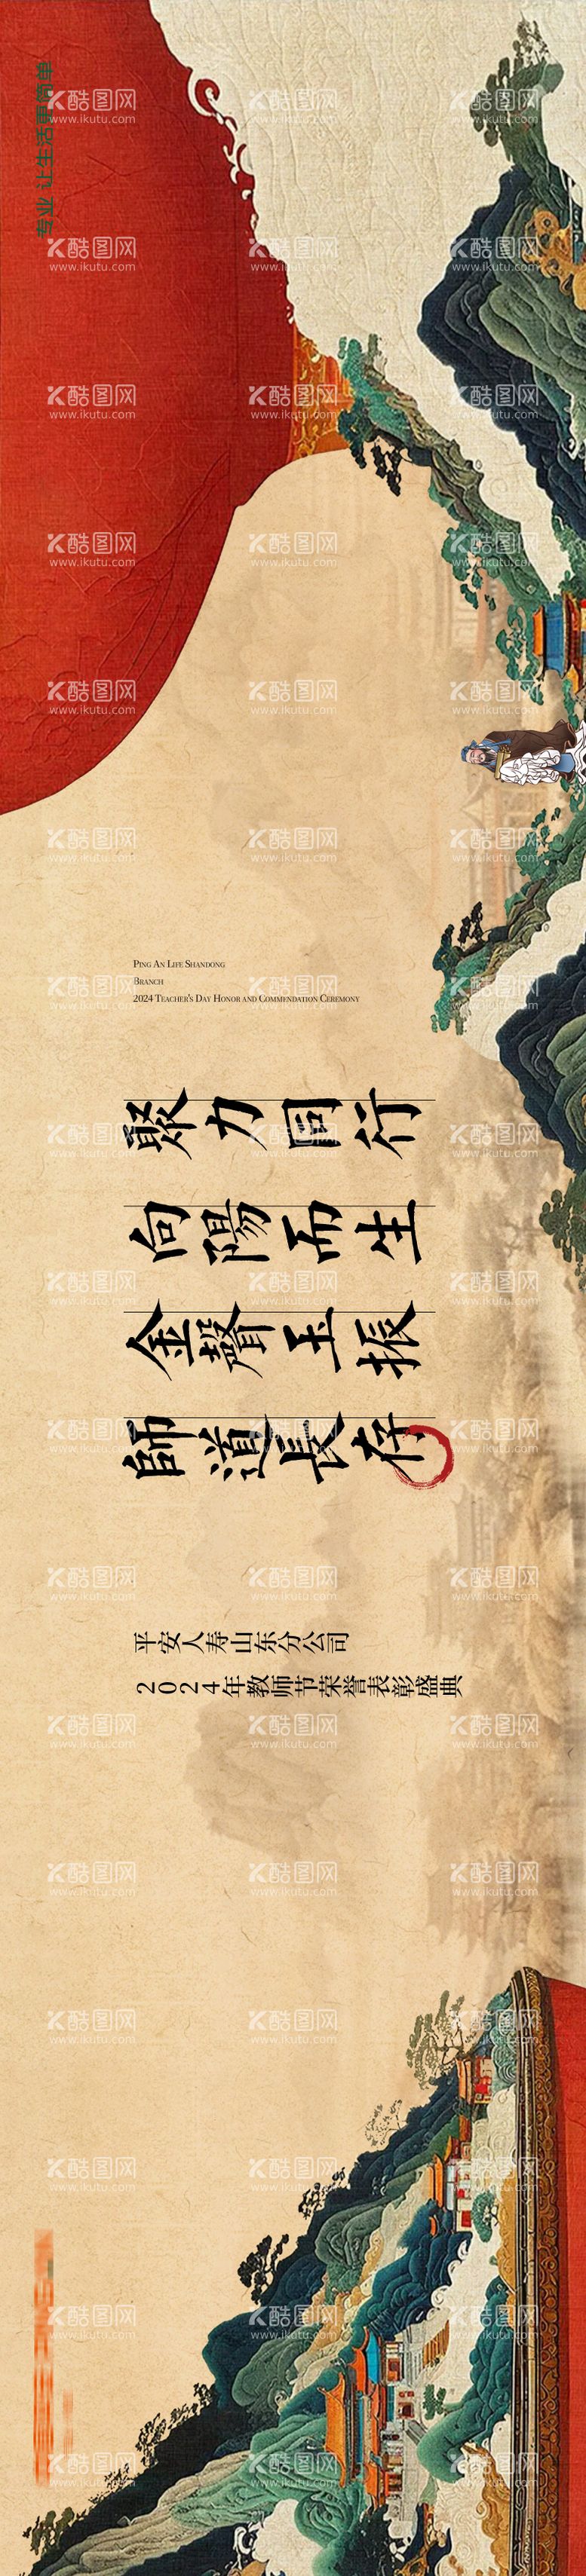 专业 让生活更简单
Ping An Life Shandong
Branch
2024 Teacher's Day Honor and Commendation Ceremony
聚力同行
向陽而生
金聲玉振
師道長存
平安人寿山东分公司
2024年教师节荣誉表彰盛典
酷图网
www.ikutu.com